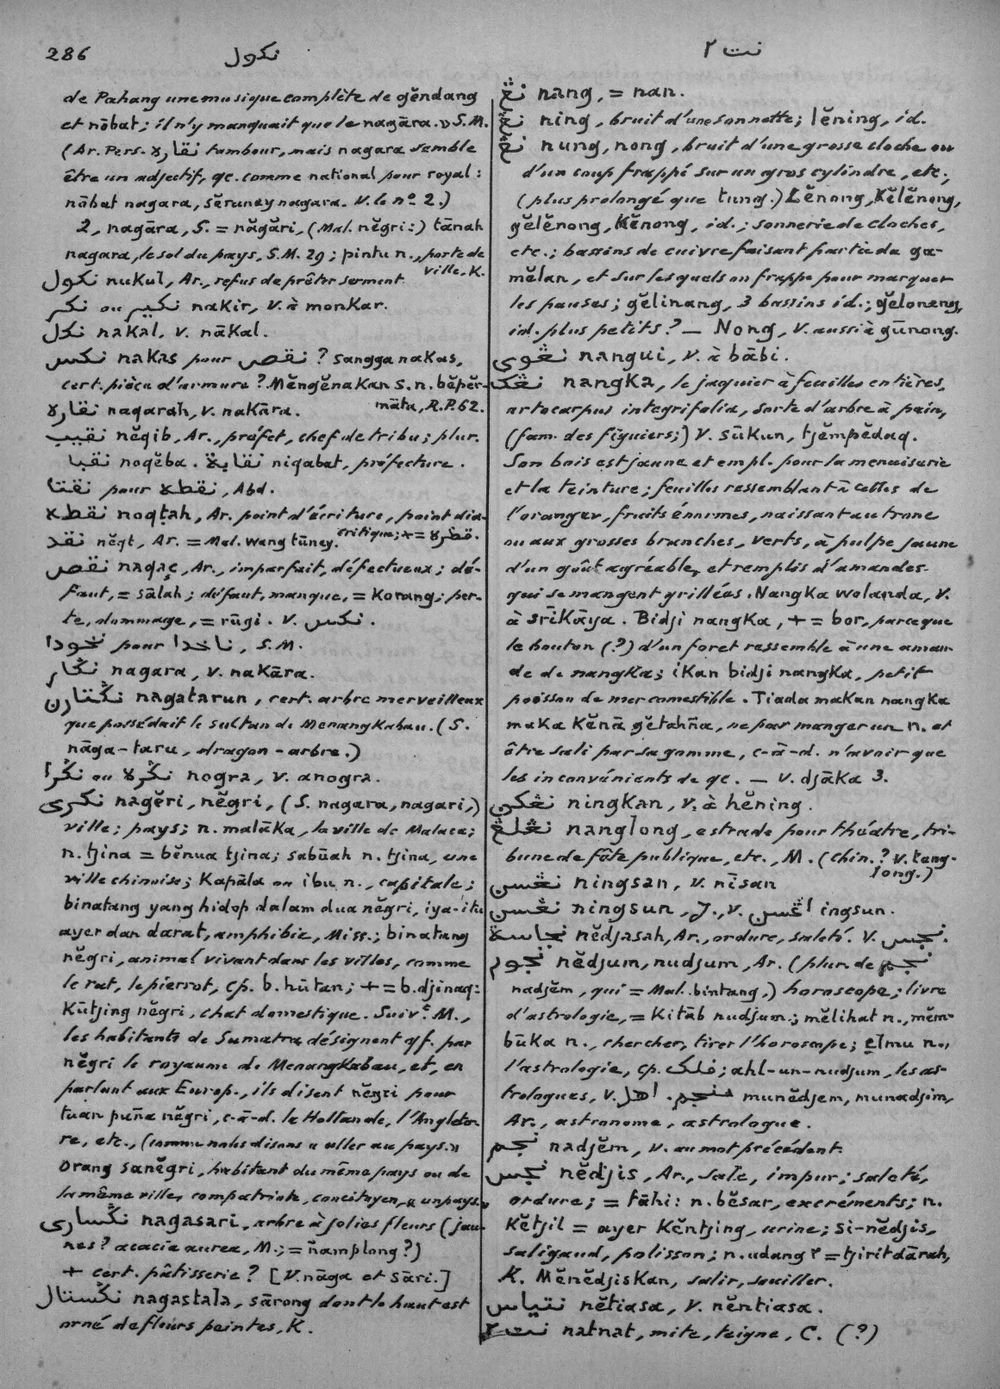 286 نكول نت ٢
de Pahang une musique complète de gĕndang
et nōbat; il n'y manquait que le nagāra.» S.M.
(Ar. Pers. نقاره tambour, mais nagara semble
être un adjectif, qc. comme national pour royal:
nābat nagara, sĕruney nagara. V. le nº 2.)
2, nagāra, S. = nāgāri, (Mal. nĕgri:) tānah
nagara, le sol du pays, S.M. 29; pintu n., porte de
ville, K.
نكول nukul, Ar., refus de prêter serment.
نكير ou نكر nakir, v. à monkar.
نكل nakal, v. nākal.
نكس nakas pour نقص ? sangga nakas,
cert. pièce d'armure? Mĕngĕnakan s. n. bĕpĕr-
māta, R.P. 62.
نقاره nagarah, v. nakāra.
نقيب nĕqib, Ar., préfet, chef de tribu; plur.
نقبا noqĕba. نقابة niqabat, préfecture.
نقتا pour نقطه, Abd.
نقطه noqṭah, Ar. point d'écriture, point dia-
critique; += قطره.
نقد nĕqt, Ar. = Mal. wang tūney.
نقص naqaç, Ar., imparfait, défectueux; dé-
faut, = sālah; défaut, manque, = korang; per-
te, dommage, = rūgi. V. نكس.
نخودا pour ناخدا, S.M.
نڬار nagara, v. nakāra.
نڬتارن nagatarun, cert. arbre merveilleux
que possédait le sultan de Menangkabau. (S.
nāga-taru, dragon-arbre.)
نڬرا ou نڬره nogra, v. anogra.
نڬري nagĕri, nĕgri, (S. nagara, nagari,)
ville; pays; n. malāka, la ville de Malaca;
n. tjina = bĕnua tjina; sabūah n. tjina, une
ville chinoise; Kapāla ou ibu n., capitale;
binatang yang hidop dalam dua nĕgri, iya-itu
ayer dan darat, amphibie, Miss.; binatang
nĕgri, animal vivant dans les villes, comme
le rat, le pierrot, cp. b. hūtan; += b. djinaq:
Kūtjing nĕgri, chat domestique. Suivᵗ M.,
les habitants de Sumatra désignent qf. par
nĕgri le royaume de Menangkabau, et, en
parlant aux Europ., ils disent nĕgri pour
tuan puña nĕgri, c-à-d. la Hollande, l'Angleter-
re, etc., (comme nous disons «aller au pays.»
Orang sanĕgri, habitant du même pays ou de
la même ville, compatriote, concitoyen, «un pays.»
نڬساري nagasari, arbre à jolies fleurs (jau-
nes? acacia aurea, M.; = ñamplong?)
+ cert. pâtisserie? [V. nāga et sāri.]
نڬستال nagastala, sārong dont le haut est
orné de fleurs peintes, K.
نڠ nang, = nan.
نڠ ning, bruit d'une sonnette; lĕning, id.
نڠ nung, nong, bruit d'une grosse cloche ou
d'un coup frappé sur un gros cylindre, etc.
(plus prolongé que tung.) Lĕnong, kĕlĕnong,
gĕlĕnong, Kĕnong, id.; sonnerie de cloches,
etc.; bassins de cuivre faisant partie du ga-
mĕlan, et sur lesquels on frappe pour marquer
les pauses; gĕlinang, 3 bassins id.; gĕloneng,
id. plus petits? — Nong, v. aussi à gūnong.
نڠوي nangui, v. à bābi.
نڠك nangka, le jaquier à feuilles entières,
artocarpus integrifolia, sorte d'arbre à pain,
(fam. des figuiers;) v. sūkun, tjĕmpĕdaq.
Son bois est jaune et empl. pour la menuiserie
et la teinture; feuilles ressemblant à celles de
l'oranger, fruits énormes, naissant au tronc
ou aux grosses branches, verts, à pulpe jaune
d'un goût agréable, et remplis d'amandes
qui se mangent grillées. Nangka wolanda, v.
à srīkāya. Bidji nangka, += bor, parce que
le bouton (?) d'un foret ressemble à une aman-
de de nangka; ikan bidji nangka, petit
poisson de mer comestible. Tiada makan nangka
maka kĕnā gĕtahña, ne pas manger un n. et
être sali par sa gomme, c-à-d. n'avoir que
les inconvénients de qc. — v. djāka 3.
نڠكن ningkan, v. à hĕning.
نڠلڠ nanglong, estrade pour théâtre, tri-
bune de fête publique, etc., M. (chin.? v. tang-
long.)
نڠسن ningsan, v. nīsan
نڠسن ningsun, J., v. اڠسن ingsun.
نجاسة nĕdjasah, Ar., ordure, saleté. V. نجس.
نجوم nĕdjum, nudjum, Ar. (plur. de نجم
nadjĕm, qui = Mal. bintang,) horoscope; livre
d'astrologie, = kitāb nudjum; mĕlihat n., mĕm-
būka n., chercher, tirer l'horoscope; elmu n.,
l'astrologie, cp. فلك; ahl-un-nudjum, les as-
trologues, v. اهل. منجم munĕdjem, munadjim,
Ar., astronome, astrologue.
نجم nadjĕm, v. au mot précédent.
نجس nĕdjis, Ar., sale, impur; saleté,
ordure; = tāhi: n. bĕsar, excréments; n.
kĕtjil = ayer kĕntjing, urine; si-nĕdjis,
saligaud, polisson; n. udang? = tjirit dārah,
K. Mĕnĕdjiskan, salir, souiller.
نتياس nĕtiasa, v. nĕntiasa.
نت ٢ natnat, mite, teigne, C. (?)